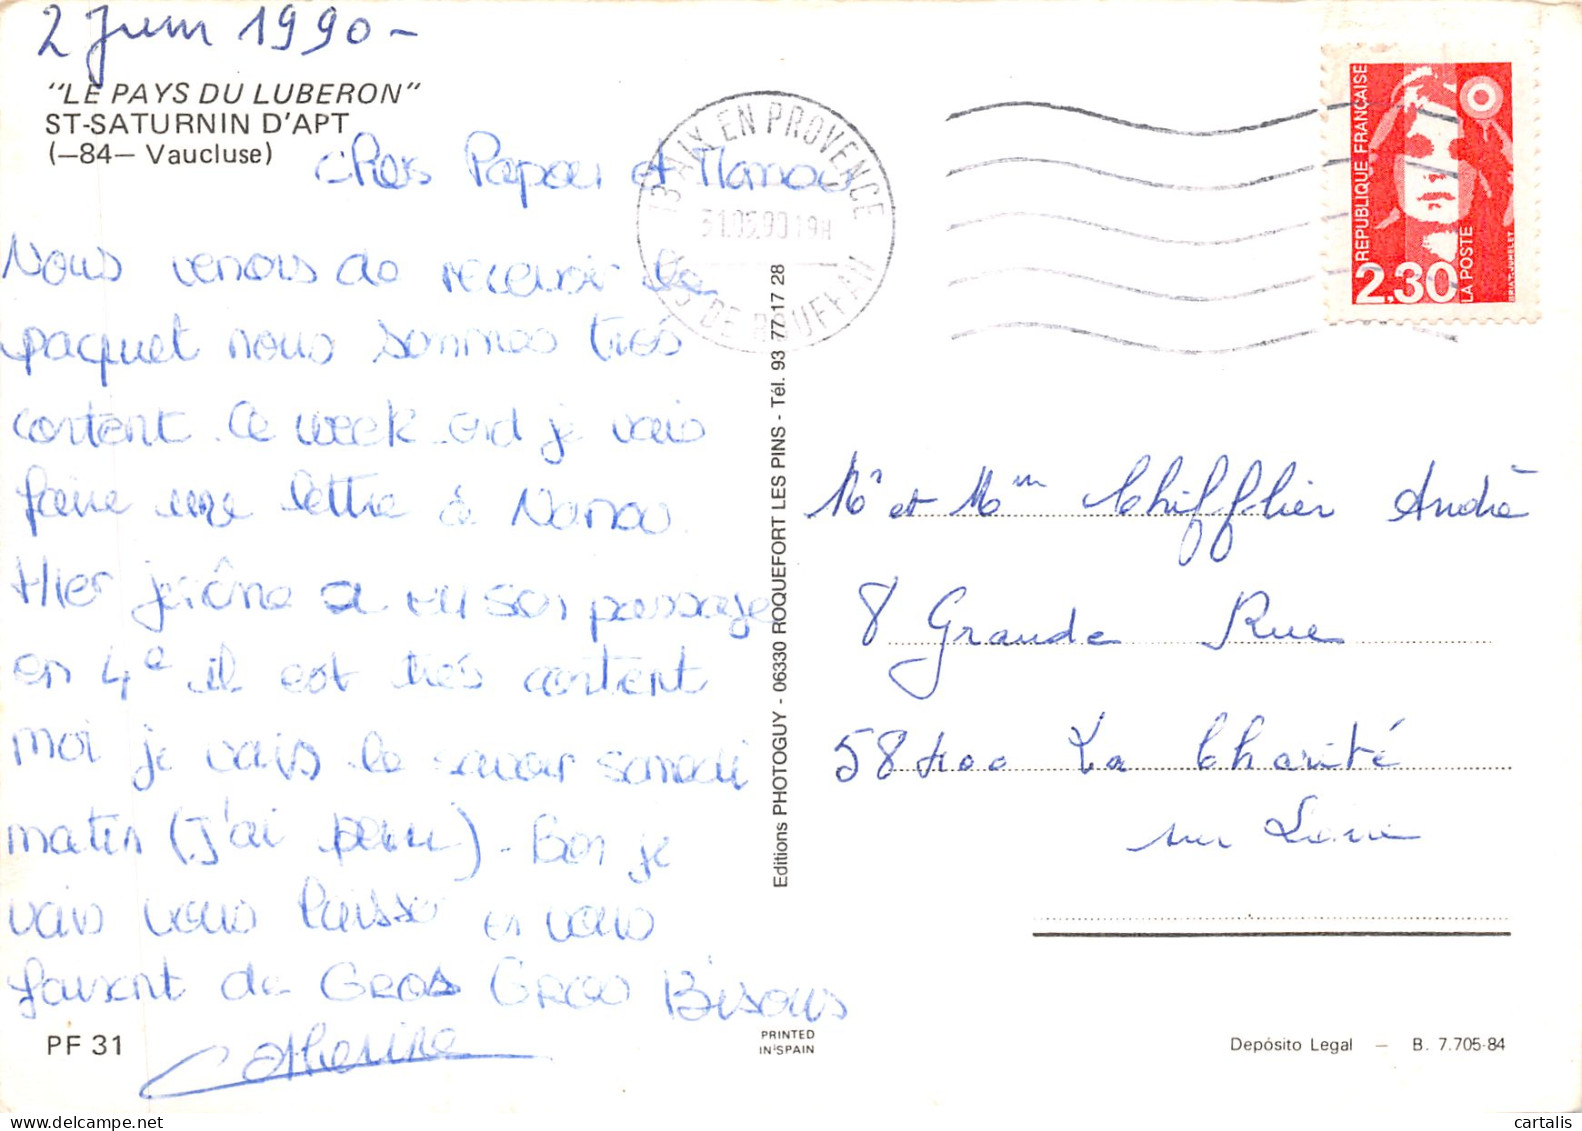 2 Juin 1990 -
"LE PAYS DU LUBERON"
ST-SATURNIN D'APT
(-84- Vaucluse)
chers Papou et Manou
Nous venons de recevoir le
paquet nous sommes très
content. Ce week end je vais
faire une lettre à Nanou.
Hier jérôme a eu son passage
en 4e il est très content
moi je vais le savoir samedi
matin (J'ai peur). Bon je
vais vous laisser en vous
faisant de GROS GROS Bisous
Catherine
PF 31
13 AIX EN PROVENCE
31.05.90 19H
DE BOUFFAN
Editions PHOTOGUY - 06330 ROQUEFORT LES PINS - Tél. 93 77 17 28
PRINTED
IN SPAIN
REPUBLIQUE FRANÇAISE
2,30
LA POSTE
BRIAT-JUMELET
Mr et Mme Chifflier André
8 Grande Rue
58400 La Charité
sur Loire
Depósito Legal — B. 7.705-84
cartalis